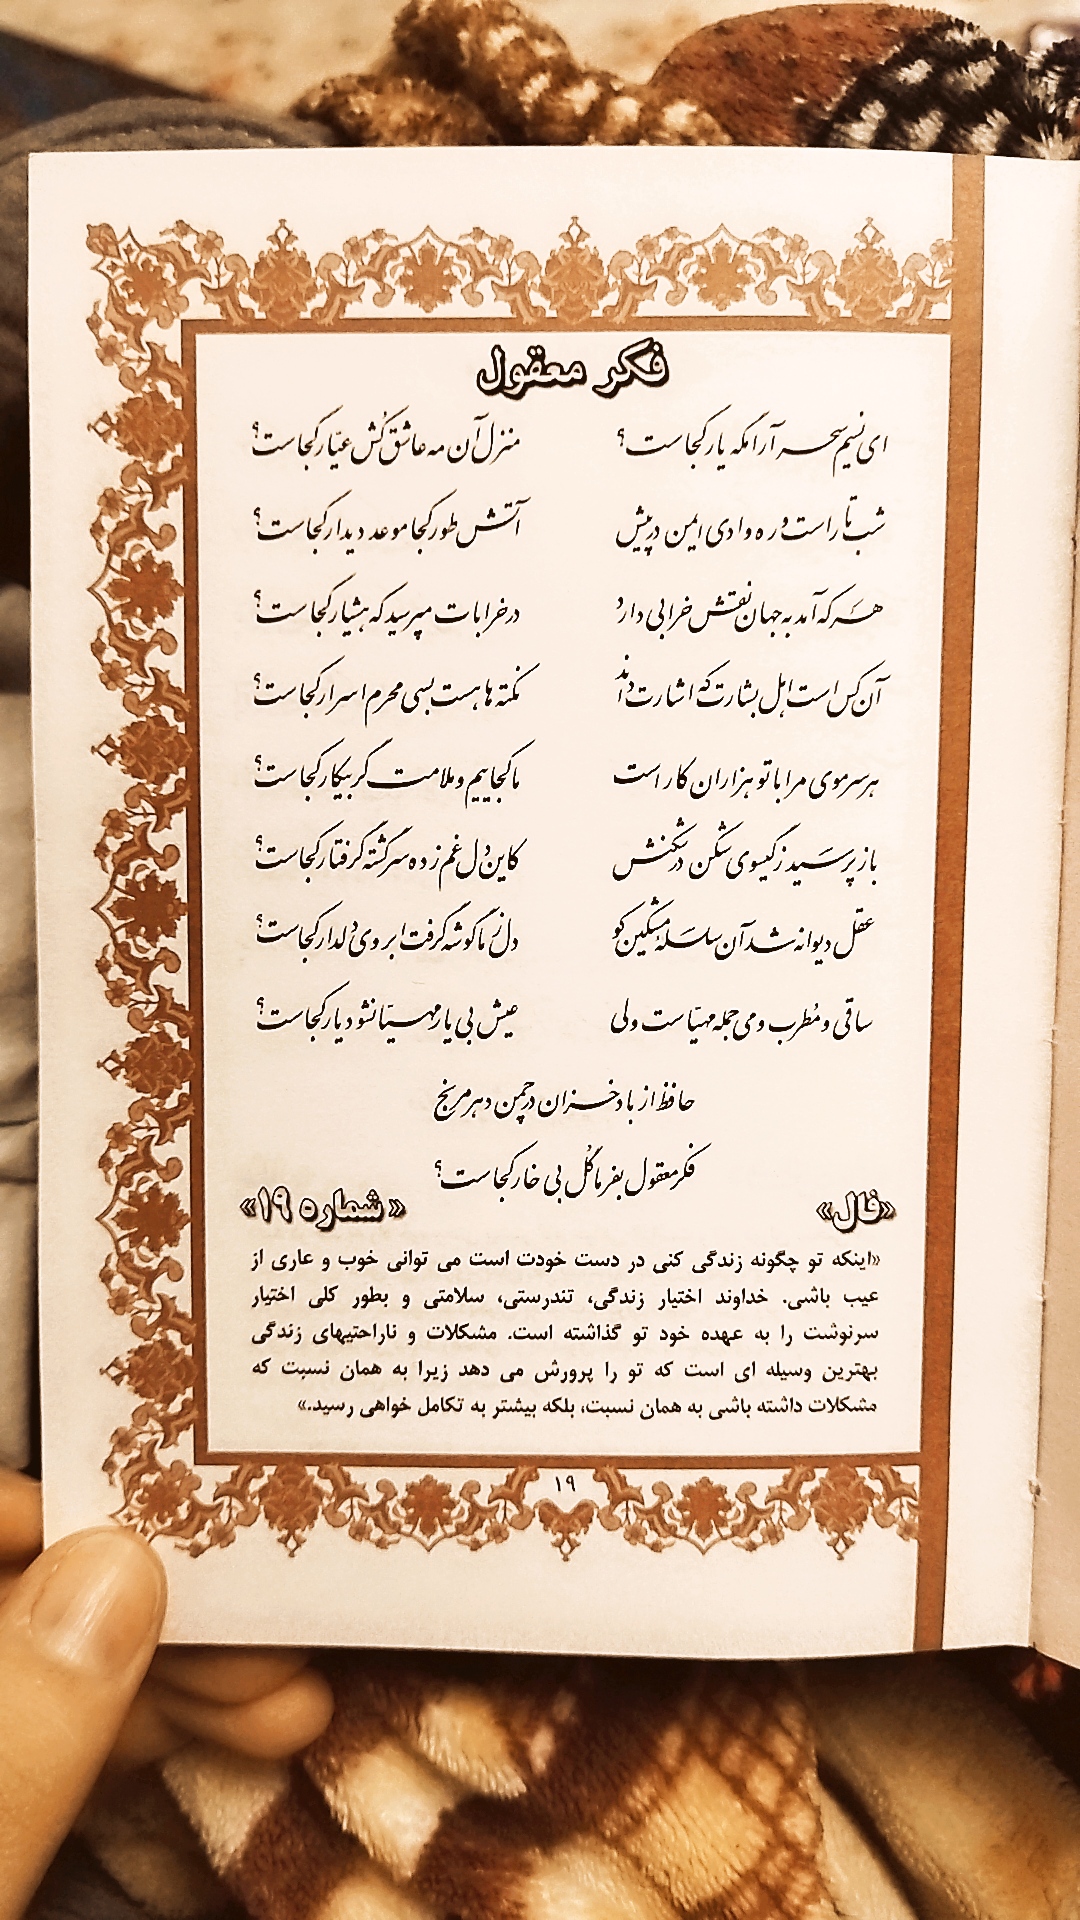 فکر معقول
ای نسیم سحر آرامگه یار کجاست؟ منزل آن مه عاشق کُش عیّار کجاست؟
شب تار است و ره وادی ایمن در پیش آتش طور کجا موعد دیدار کجاست؟
هر که آمد به جهان نقش خرابی دارد در خرابات مپرسید که هشیار کجاست؟
آن کس است اهل بشارت که اشارت داند نکته ها هست بسی محرم اسرار کجاست؟
هر سر موی مرا با تو هزاران کار است ما کجاییم و ملامت گر بیکار کجاست؟
باز پرسید ز گیسوی شکن در شکنش کاین دل غم زده سرگشته گرفتار کجاست؟
عقل دیوانه شد آن سلسلهٔ مشکین کو دل ز ما گوشه گرفت ابروی دلدار کجاست؟
ساقی و مُطرب و می جمله مهیّاست ولی عیش بی یار مهیّا نشود یار کجاست؟
حافظ از باد خزان در چمن دهر مرنج
فکر معقول بفرما گُل بی خار کجاست؟
«فال» «شماره ۱۹»
«اینکه تو چگونه زندگی کنی در دست خودت است می توانی خوب و عاری از
عیب باشی. خداوند اختیار زندگی، تندرستی، سلامتی و بطور کلی اختیار
سرنوشت را به عهده خود تو گذاشته است. مشکلات و ناراحتیهای زندگی
بهترین وسیله ای است که تو را پرورش می دهد زیرا به همان نسبت که
مشکلات داشته باشی به همان نسبت، بلکه بیشتر به تکامل خواهی رسید.»
۱۹